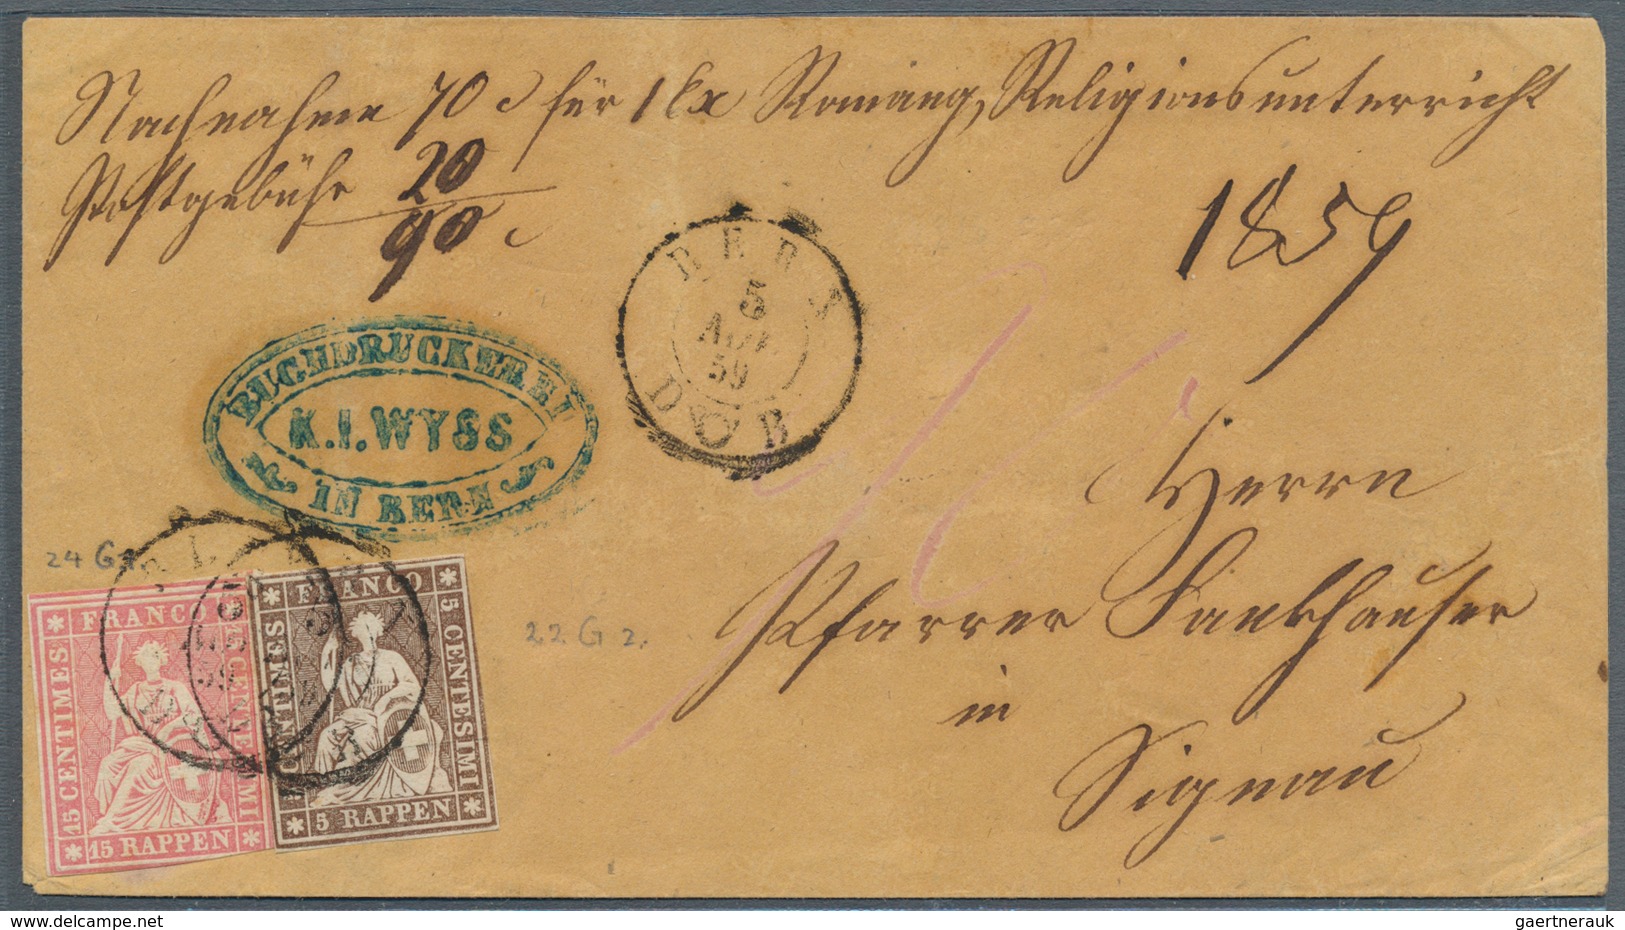 Nachnahme 70 c für 1 Ex Romang, Religionsunterricht
Postgebühr 20
90 c
1859
BERN
5
59
BUCHDRUCKEREI
K.I.WYSS
IN BERN
Herrn
Pfarrer Fankhauser
in
Signau
24 G
22 G 2.
FRANCO
15 CENTIMES
CENTESIMI
15 RAPPEN
FRANCO
CENTIMES
5 CENTESIMI
5 RAPPEN
gaertnerauk